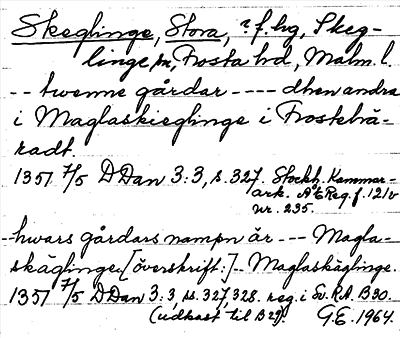 Skeglinge, Stora, ? f. hg, Skeg-
linge sn, Frosta hd, Malm. l.
-- twenne gårdar ---- dhen andra
i Maglaskieglinge i Frostehä-
radt.
1351 7/5 D Dan 3:3, s. 327. Stockh. Kammar-
ark. A°E Reg. f. 121v
nr. 235.
-hwars gårdars nampn är --- Magla-
skäglinge. [överskrift:]-- Maglaskäglinge.
1351 7/5 D Dan 3:3, ss. 327, 328. reg. i Sv. R.A. B30.
(udkast til B29). G.E. 1964.